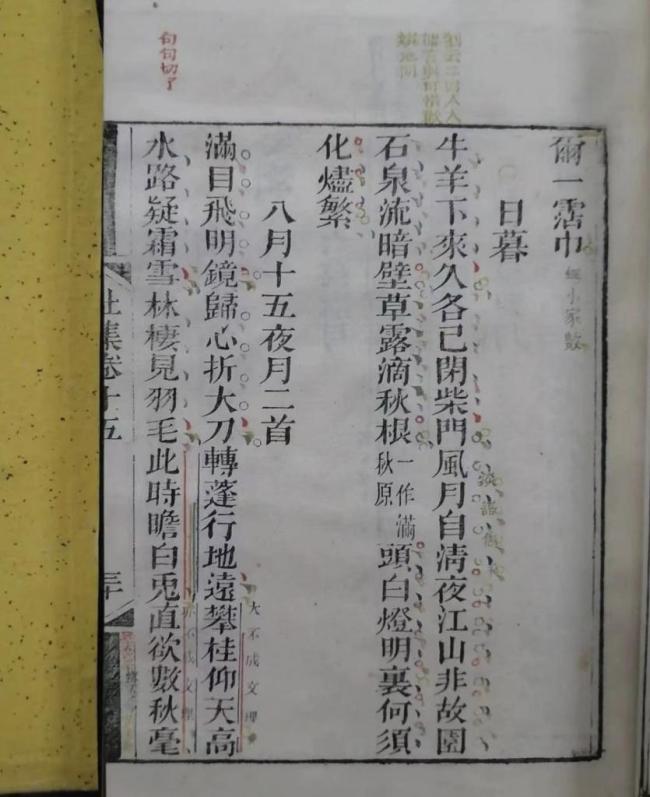 爾一霑巾
日暮
牛羊下來久各已閉柴門風月自清夜江山非故園
石泉流暗壁草露滴秋根一作滿秋原頭白燈明裏何須
化燼繁
八月十五夜月二首
滿目飛明鏡歸心折大刀轉蓬行地遠攀桂仰天高
大不成文理
水路疑霜雪林棲見羽毛此時瞻白兎直欲數秋毫
亦不成文理
句句切了
杜集卷十五
三十